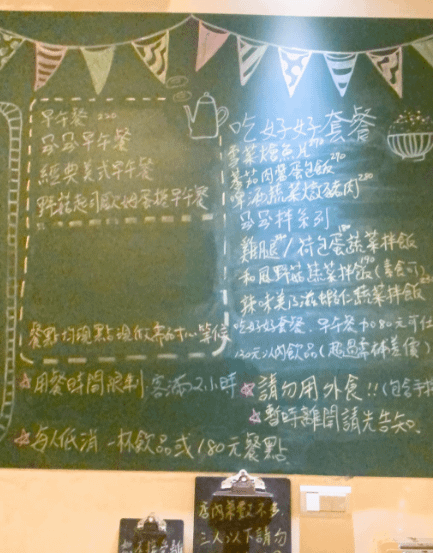 早午餐 220
早午餐
經典美式早午餐
野菇起司歐姆蛋捲早午餐
餐點均現點現做需耐心等候
吃好好套餐
番茄肉醬蛋包飯 290
啤酒蔬菜燉豬肉 280
拌系列
雞腿/荷包蛋蔬菜拌飯
和風野菇蔬菜拌飯 190 (素食可)
辣味美乃滋蝦仁蔬菜拌飯
吃好好套餐、早午餐 加80元可任
130元以內飲品(超過需補差價)
用餐時間限制 客滿2小時
請勿用外食!!(包含手
暫時離開請先告知、
每人低消 一杯飲品或180元餐點
店內
三人以下請勿